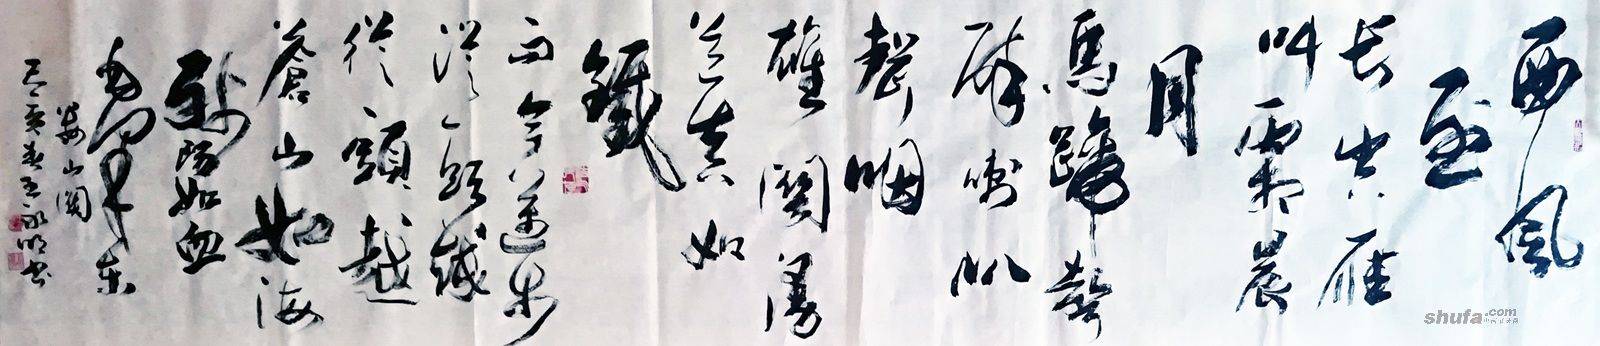 西風
烈
长空雁
叫霜晨
月
馬蹄聲
碎喇叭
聲咽
雄關漫
道真如
鐵
而今邁步
從頭越
從頭越
蒼山如海
殘陽如血
毛澤东
娄山關
己亥春王永明书
shufa.com